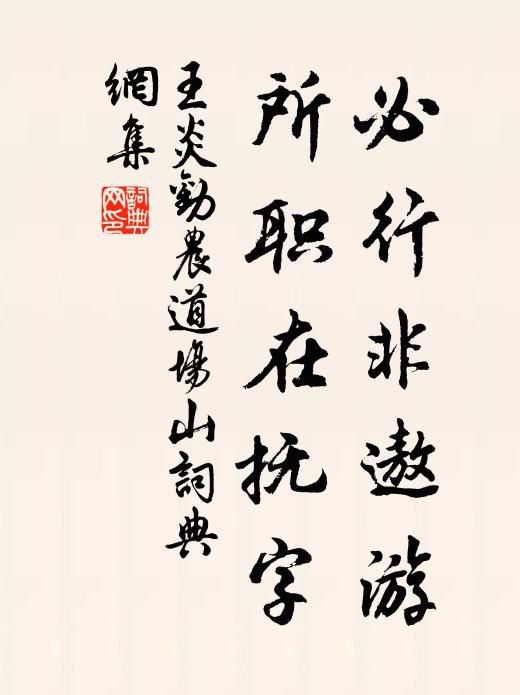 必行非遨游
所职在抚字
王炎勸農道場山詞典
網集
詞典
网印